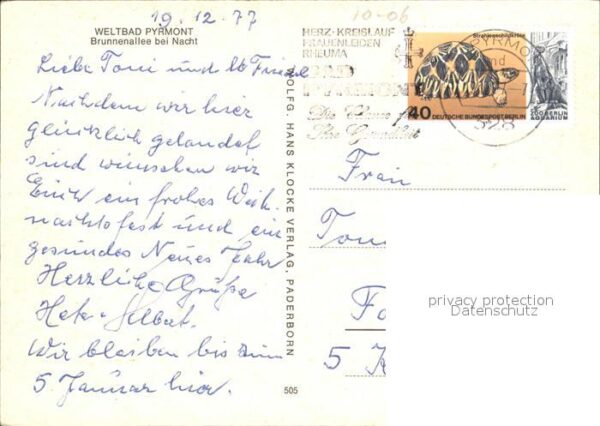 19.12.77
10-06
WELTBAD PYRMONT
Brunnenallee bei Nacht
Liebe Toni und lb
Nachdem wir hier
glücklich gelandet
sind wünschen wir
Euch ein frohes Weih-
nachtsfest und ein
gesundes Neues Jahr
Herzliche Grüße
Wir bleiben bis zum
5. Januar hier.
WOLFG. HANS KLOCKE VERLAG, PADERBORN
505
HERZ-KREISLAUF
FRAUENLEIDEN
RHEUMA
BAD
PYRMONT
Ihre Gesundheit
PYRMONT
328
Strahlenschildkröte
40 DEUTSCHE BUNDESPOST BERLIN
ZOO BERLIN
AQUARIUM
Frau
Ton
5 K
privacy protection
Datenschutz